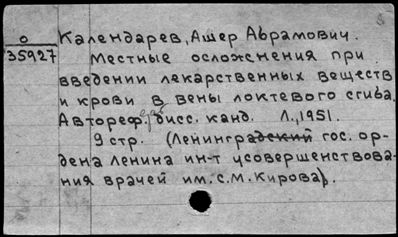 О
35927
Календарев, Ашер Абрамович.
Местные осложнения при
введении лекарственных веществ
и крови в вены локтевого сгиба.
Автореф. дисс. канд. Л., 1951.
9 стр. (Ленинградский гос. ор-
дена Ленина ин-т усовершенствова-
ния врачей им. С.М. Кирова).